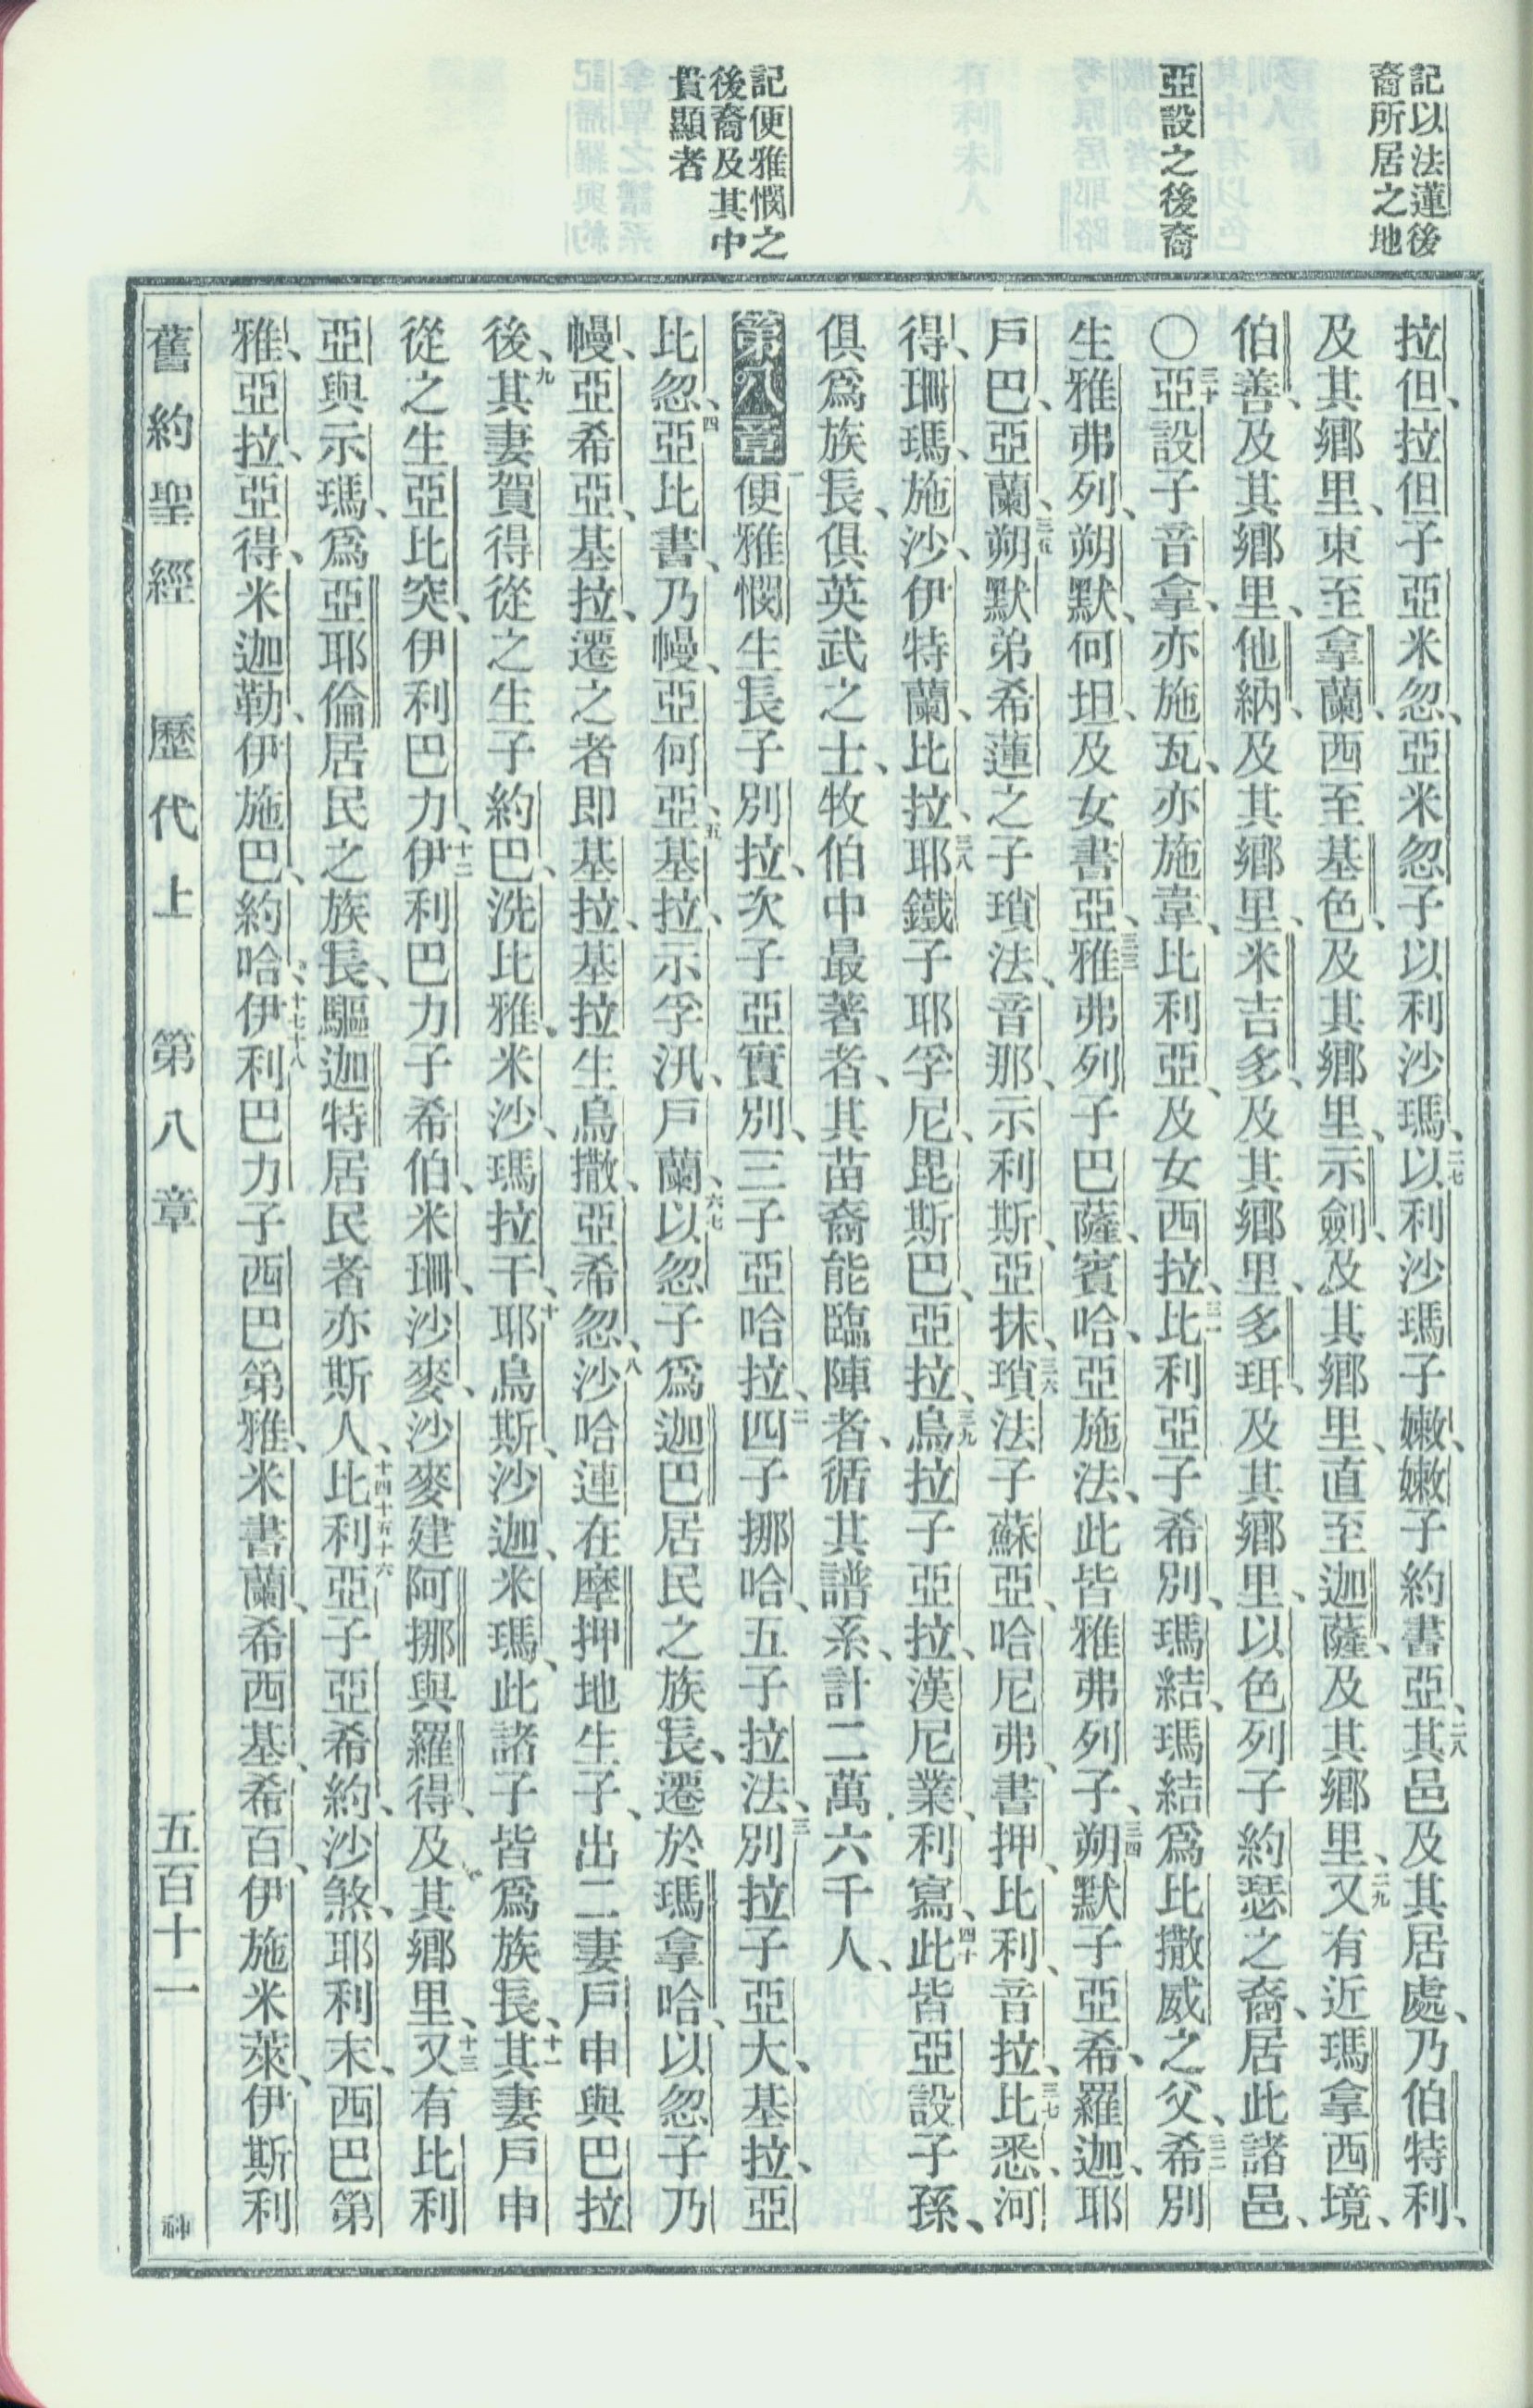 記以法蓮後
裔所居之地
亞設之後裔
記便雅憫之
後裔及其中
貴顯者
拉但、拉但子亞米忽、亞米忽子以利沙瑪、二七以利沙瑪子嫩、嫩子約書亞、二八其邑及其居處、乃伯特利、
及其鄉里、東至拿蘭、西至基色、及其鄉里、示劍、及其鄉里、直至迦薩、及其鄉里、二九又有近瑪拿西境、
伯善、及其鄉里、他納、及其鄉里、米吉多、及其鄉里、多珥、及其鄉里、以色列子約瑟之裔、居此諸邑、
〇三十亞設子音拿、亦施瓦、亦施韋、比利亞、及女西拉、三一比利亞子希別、瑪結、瑪結爲比撒威之父、三二希別
生雅弗列、朔默、何坦、及女書亞、三三雅弗列子巴薩、賓哈、亞施法、此皆雅弗列子、三四朔默子亞希、羅迦、耶
戶巴、亞蘭、三五朔默弟希蓮之子瑣法、音那、示利斯、亞抹、三六瑣法子蘇亞、哈尼弗、書押、比利、音拉、三七比悉、河
得、珊瑪、施沙、伊特蘭、比拉、三八耶鐵子耶孚尼、毘斯巴、亞拉、三九烏拉子亞拉、漢尼業、利寫、四十此皆亞設子孫、
俱爲族長、俱英武之士、牧伯中最著者、其苗裔能臨陣者、循其譜系、計二萬六千人、
第八章 一便雅憫生長子別拉、次子亞實別、三子亞哈拉、二四子挪哈、五子拉法、三別拉子亞大、基拉、亞
比忽、四亞比書、乃幔、亞何亞、五基拉、示孚汛、戶蘭、六七以忽子爲迦巴居民之族長、遷於瑪拿哈、以忽子乃
幔、亞希亞、基拉、遷之者即基拉、基拉生烏撒、亞希忽、八沙哈連在摩押地生子、出二妻戶申與巴拉
後、九其妻賀得從之生子約巴、洗比雅、米沙、瑪拉干、十耶烏斯、沙迦、米瑪、此諸子皆爲族長、十一其妻戶申
從之生亞比突、伊利巴力、十二伊利巴力子希伯、米珊、沙麥、沙麥建阿挪與羅得、及其鄉里、十三又有比利
亞與示瑪、爲亞耶倫居民之族長、驅迦特居民者亦斯人、十四十五十六比利亞子亞希約、沙煞、耶利末、西巴第
雅、亞拉、亞得、米迦勒、伊施巴、約哈、十七十八伊利巴力子西巴第雅、米書蘭、希西基、希百、伊施米萊、伊斯利
舊約聖經 歷代上 第八章 五百十一 神